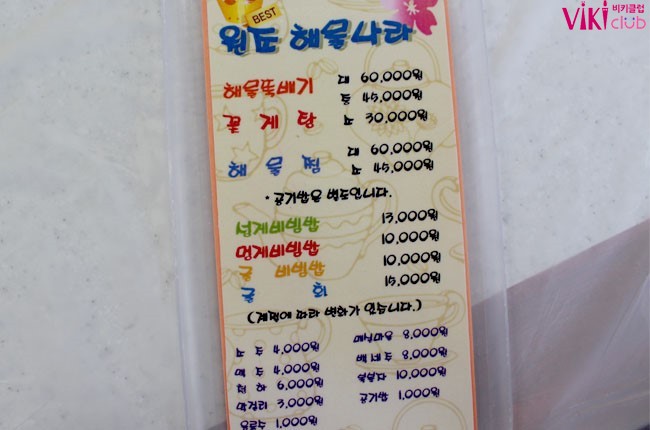 VIKI 비키클럽 club
BEST
원조 해물나라
해물뚝배기 대 60,000원
중 45,000원
꽃게탕 소 30,000원
해물찜 대 60,000원
소 45,000원
* 공기밥은 별도입니다.
성게비빔밥 13,000원
멍게비빔밥 10,000원
굴 비빔밥 10,000원
굴 회 15,000원
(계절에 따라 변화가 있습니다.)
소주 4,000원
맥주 4,000원
청하 6,000원
막걸리 3,000원
음료수 1,000원
매실마을 8,000원
백세주 8,000원
복분자 10,000원
공기밥 1,000원